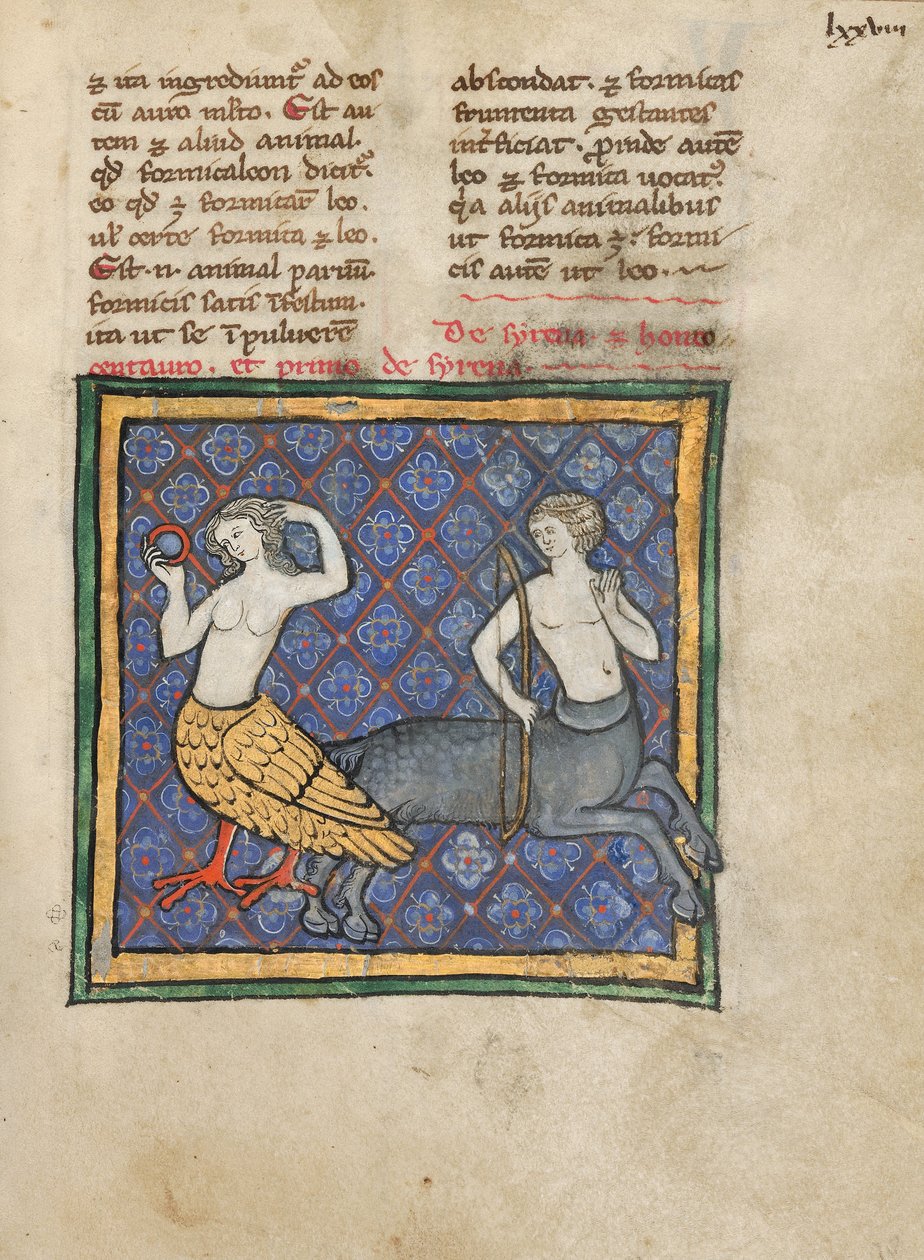 lxxviii
⁊ ita ingrediunt᷑ ad eos
cū auro mĺto. Est au
tem ⁊ aliud animal.
qđ formicaleon dicit᷑.
eo qđ ÷ formicaꝝ leo.
uł certe formica ⁊ leo.
Est .n. animal paruū.
formicis satis īfestum.
ita ut se ī puluerē
abscondat. ⁊ formicas
frumenta gestantes
int̾ficiat. ꝓinde autē
leo ⁊ formica uocat᷑.
q̇a alijs animalibus
ut formica ÷. formi
cis autē ut leo.
De syrena. ⁊ hono
centauro. et primo de syrena.